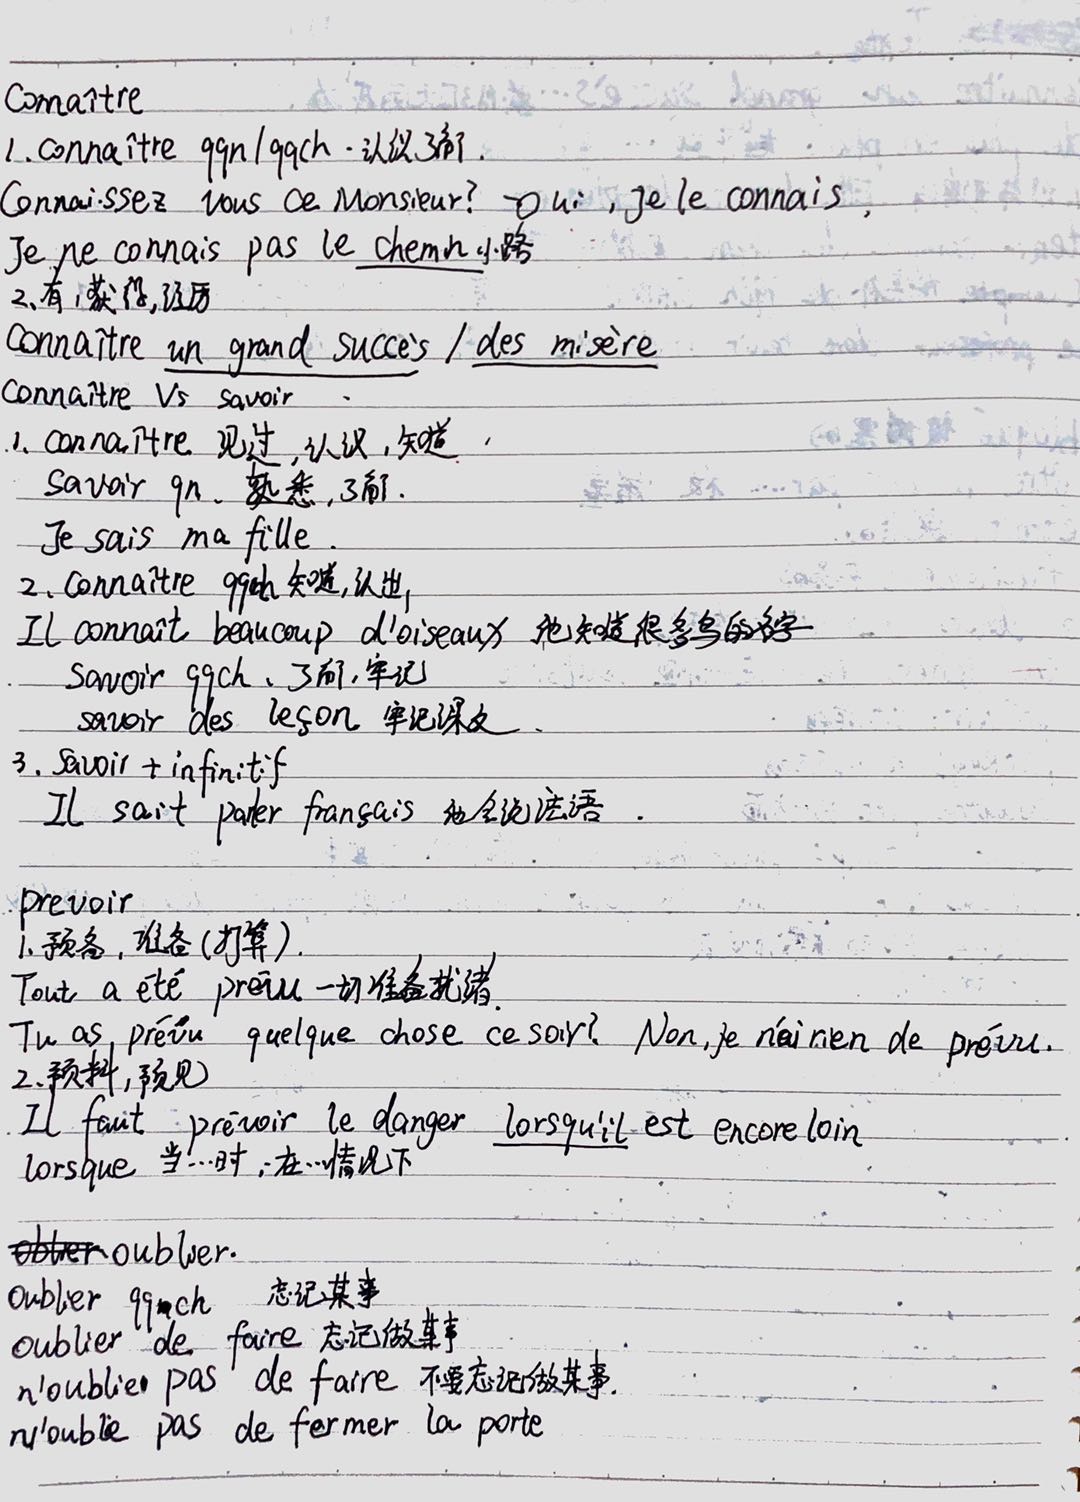 Connaître
1. Connaître qqn/qqch. 认识了解.
Connaissez vous ce Monsieur? Oui, je le connais,
Je ne connais pas le chemn 小路
2、有,获得,经历
Connaître un grand succès / des misère
Connaître Vs savoir
1、connaître 见过,认识,知道
Savoir qn、熟悉,了解.
Je sais ma fille.
2、Connaître qqch 知道,认出,
Il connaît beaucoup d'oiseaux 他知道很多鸟的名字
Savoir qqch、了解,牢记
savoir des leçon 牢记课文.
3. Savoir + infinitif
Il sait parler français 他会说法语.
prevoir
1. 预备,准备(打算).
Tout a été prévu 一切准备就绪.
Tu as prévu quelque chose ce soir? Non, je n'ai rien de prévu.
2.预料,预见
Il faut prévoir le danger lorsqu'il est encore loin
lorsque 当…时,在…情况下
oublier.
oublier qqch 忘记某事
oublier de faire 忘记做某事
n'oublie pas de faire 不要忘记做某事.
n'oublie pas de fermer la porte